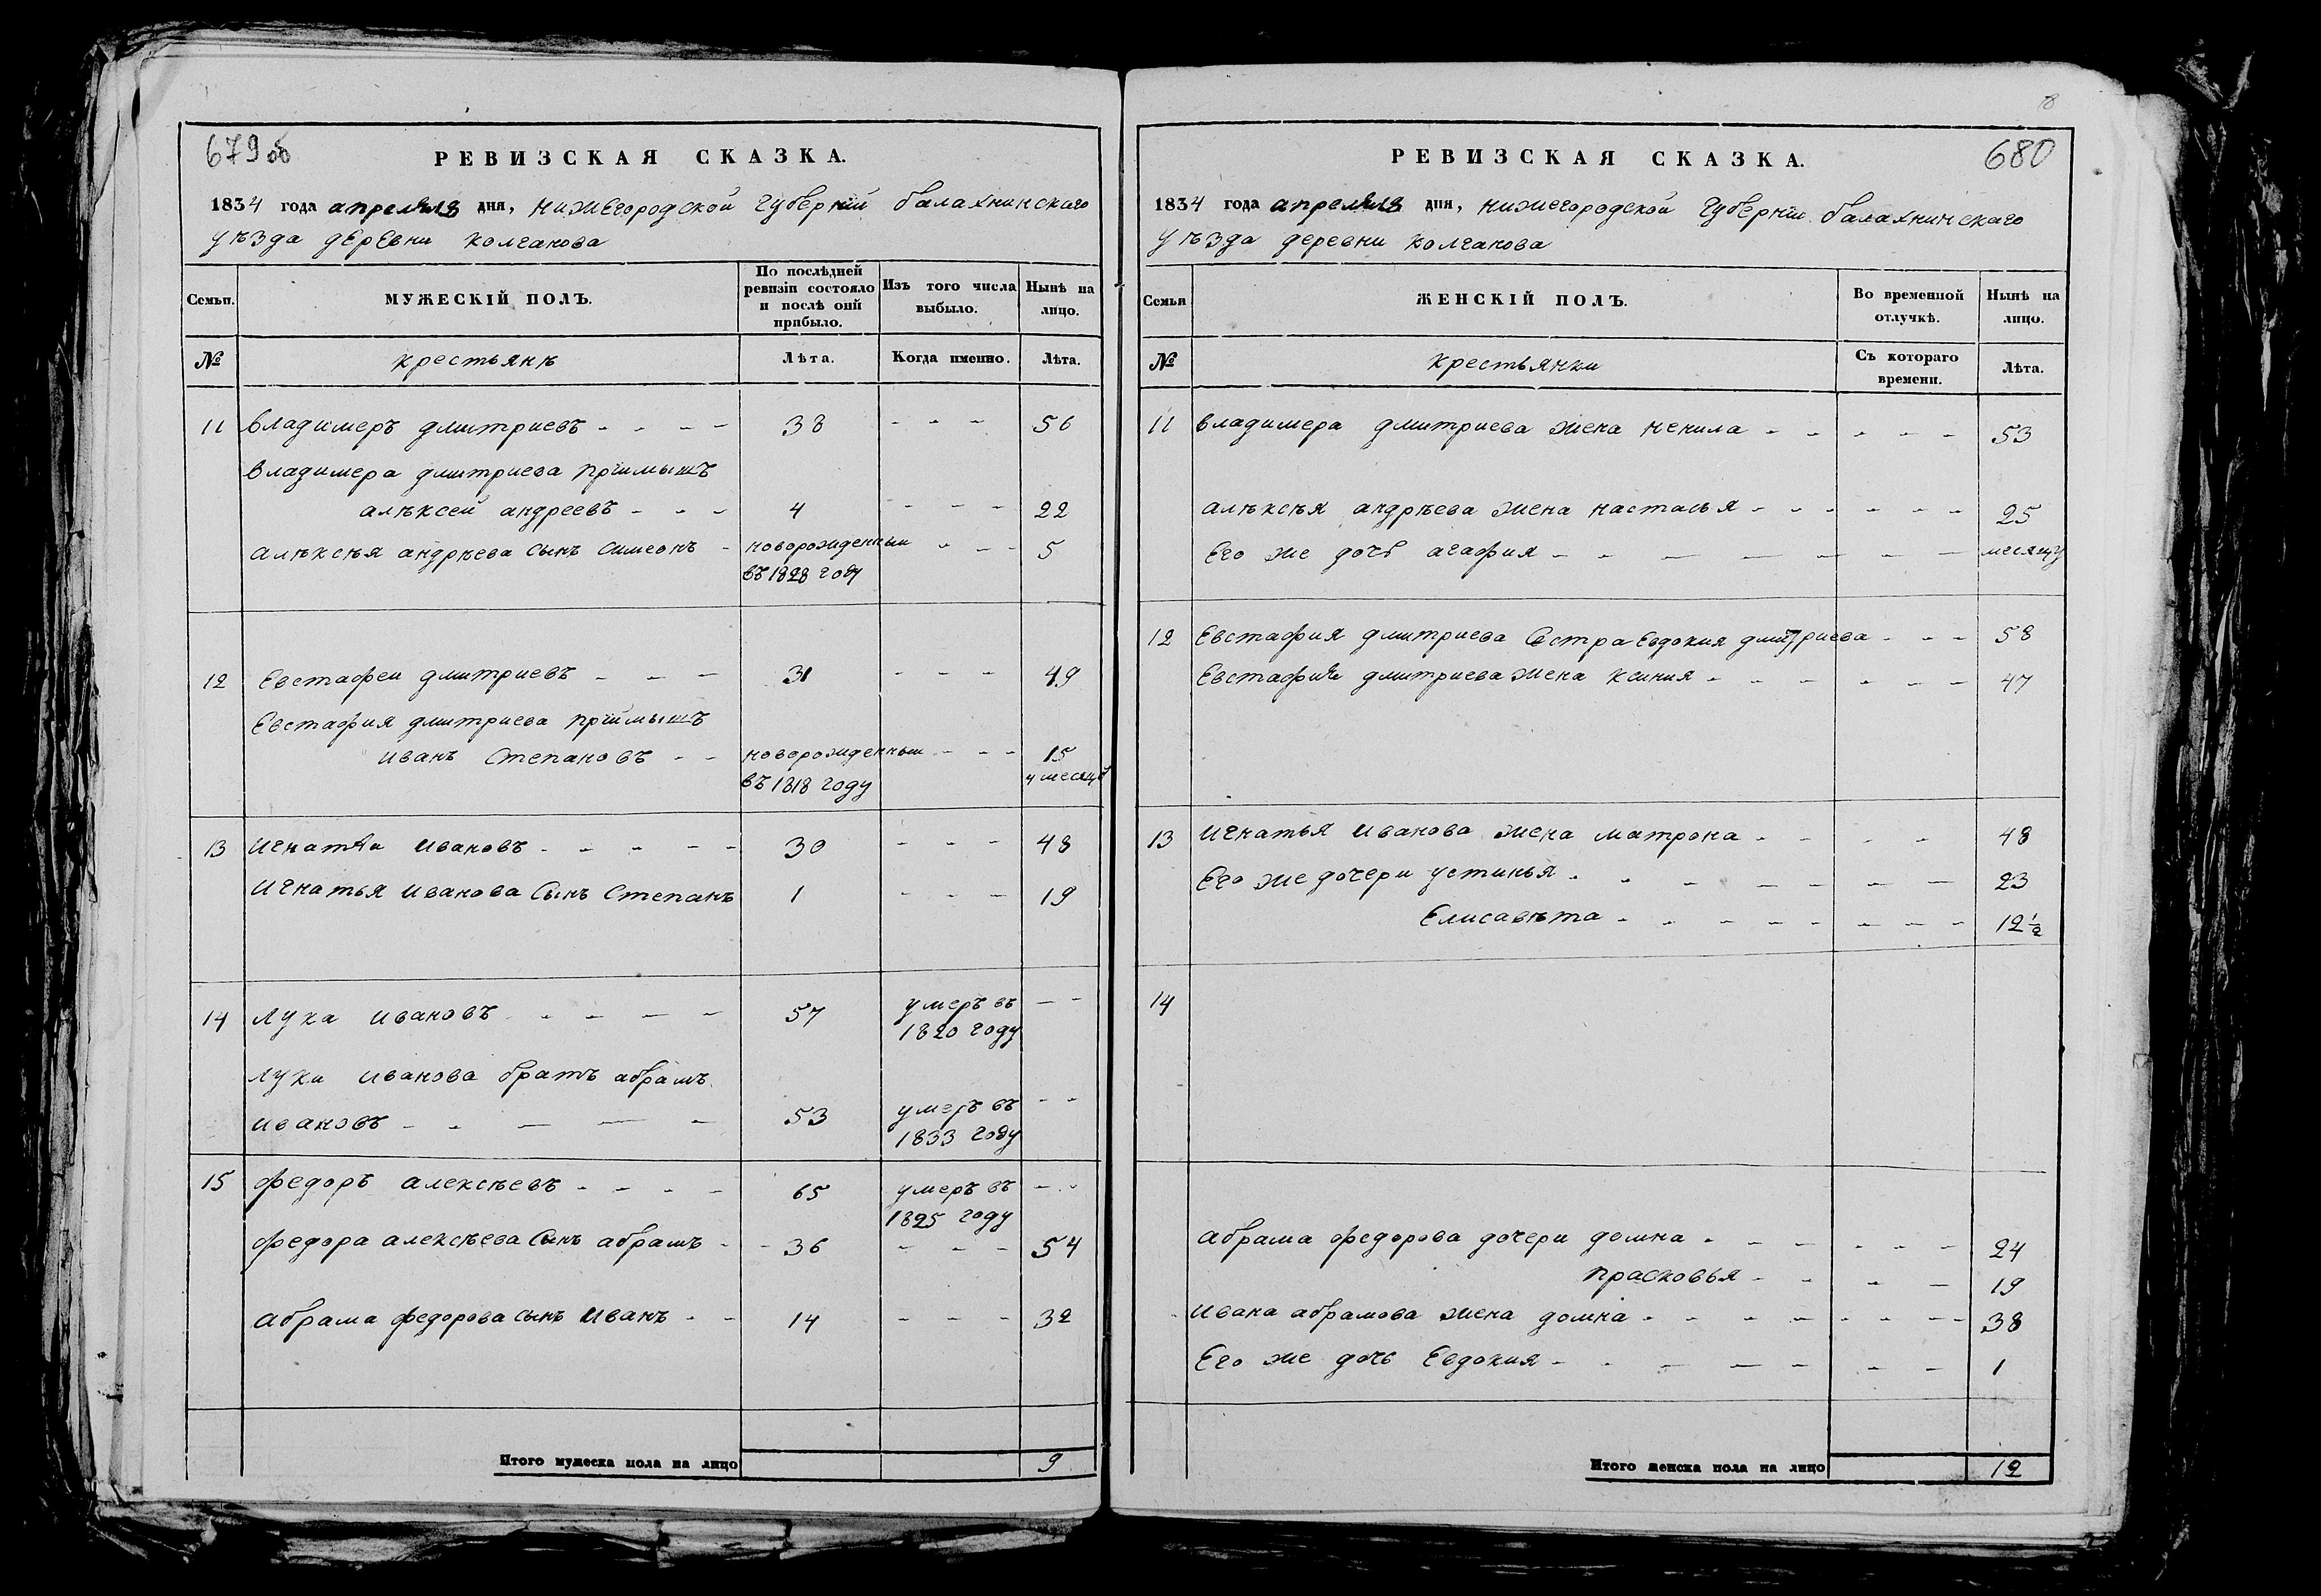 679 об
РЕВИЗСКАЯ СКАЗКА.
1834 года апреля 18 дня, нижегородской губернїи балахнинскаго
уѣзда деревни колчанова
Семьи.
МУЖЕСКІЙ ПОЛЪ.
По послѣдней ревизіи состояло и послѣ оній прибыло.
Изъ того числа выбыло.
Нынѣ на лицо.
№
крестьянѣ
Лѣта.
Когда именно.
Лѣта.
11 владимеръ дмитриевъ - - - - 38 - - - 56
владимера дмитриева приимышъ
алѣксей андреевъ - - - 4 - - - - 22
алѣксѣя андрѣева сынъ симеонъ - новорожденныи - - - 5
въ 1828 году
12 Евстафеи дмитриевъ - - - 31 - - - 49
Евстафия дмитриева приимышъ
иванъ Степановъ - - новорожденныи - - - 15
въ 1818 году 4 месяцъ
13 игнатеи ивановъ - - - - - - 30 - - - 48
игнатья иванова Сынъ Степанъ 1 - - - 19
14 лука ивановъ - - - - - 57 умеръ въ - -
1820 году
луки иванова братъ абрамъ
ивановъ - - - - - 53 умеръ въ - -
1833 году
15 федоръ алексѣевъ - - - - 65 умеръ въ - -
1825 году
федора алексѣева Сынъ абрамъ - - 36 - - - 54
абрама федорова сынъ иванъ - - 14 - - - 32
Итого мужеска пола на лицо 9
680
РЕВИЗСКАЯ СКАЗКА.
1834 года апреля 18 дня, нижегородской губернїи балахнинскаго
уѣзда деревни колчанова
Семьи
ЖЕНСКІЙ ПОЛЪ.
Во временной отлучкѣ.
Нынѣ на лицо.
№
крестьянки
Съ котораго времени.
Лѣта.
11 владимера дмитриева жена ненила - - - - - 53
алѣксѣя андрѣева жена настасья - - - - - - 25
Его же дочь агафия - - - - - - - - месяцу
12 Евстафия дмитриева Сестра Евдокия дмитриева - - - 58
Евстафия дмитриева жена ксиния - - - - - - - 47
13 игнатья иванова жена матрона - - - - 48
Его же дочери устинья - - - - - - - - 23
Елисавѣта - - - - - - - - 12 1/2
14
абрама федорова дочери домна - - - - - - - 24
прасковья - - - - 19
ивана абрамова жена домна - - - - - - - - 38
Его же дочь Евдокия - - - - - - - 1
Итого женска пола на лицо 12